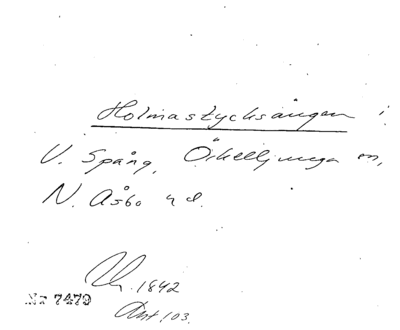 Holmastycksängen i
V. Spång, Örkelljunga sn,
N. Åsbo hd.
1842
No 7479
Ant 103.